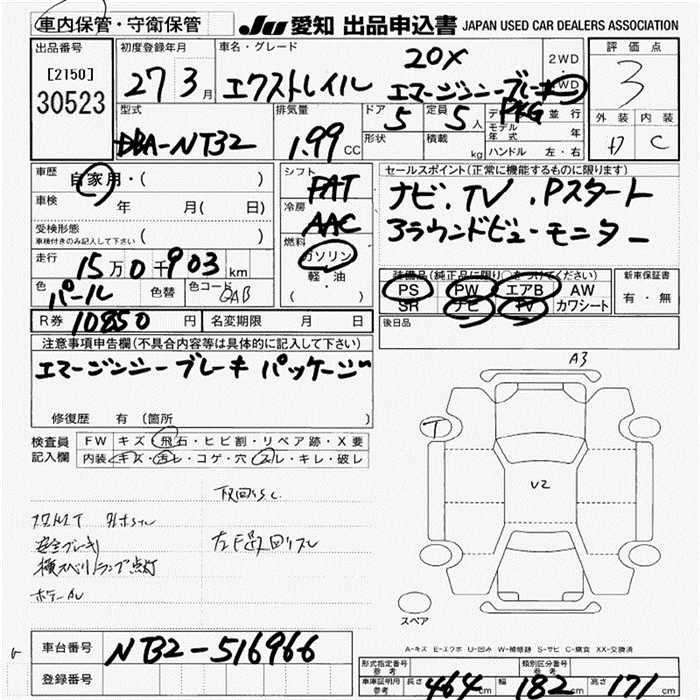 車内保管・守衛保管 JU 愛知 出品申込書 JAPAN USED CAR DEALERS ASSOCIATION
出品番号 初度登録年月 車名・グレード 評価点
[2150] 27 3月 エクストレイル 20X 2WD 3
30523 エマージンシーブレーキ 4WD
PKG 外装 内装
型式 排気量 ドア 定員 ディーラー 並行 D C
DBA-NT32 1.99CC 5 5人 モデル年式 年
形状 積載 kg ハンドル 左・右
車歴 自家用・( ) シフト FAT セールスポイント(正常に機能するものに限ります)
車検 年 月( 日) 冷房 AAC ナビ.TV.Pスタート
受検形態 ( ) アラウンドビューモニター
車検付きのみ記入して下さい 燃料 ガソリン
走行 15万0千903km 軽・油 装備品(純正品に限り○をつけてください) 新車保証書
色 パール 色替 色コード QAB ( ) PS PW エアB AW 有・無
SR ナビ TV カワシート
R券 10850円 名変期限 月 日 後日品
注意事項申告欄(不具合内容等は具体的に記入して下さい)
エマージンシーブレーキ パッケージ A3
修復歴 有(箇所 )
検査員 FW キズ・飛石・ヒビ割・リペア跡・X要 T
記入欄 内装 キズ・汚レ・コゲ・穴・スレ・キレ・破レ
V2
安全ブレーキ
横スベリランプ点灯
スペア
A-キズ E-エクボ U-凹み W-補修跡 S-サビ C-腐食 XX-交換済
車台番号 NT32-516966
登録番号
形式指定番号 参考 類別区分番号 参考
車庫証明用 参考 長さ 464cm 幅 182cm 高さ 171cm